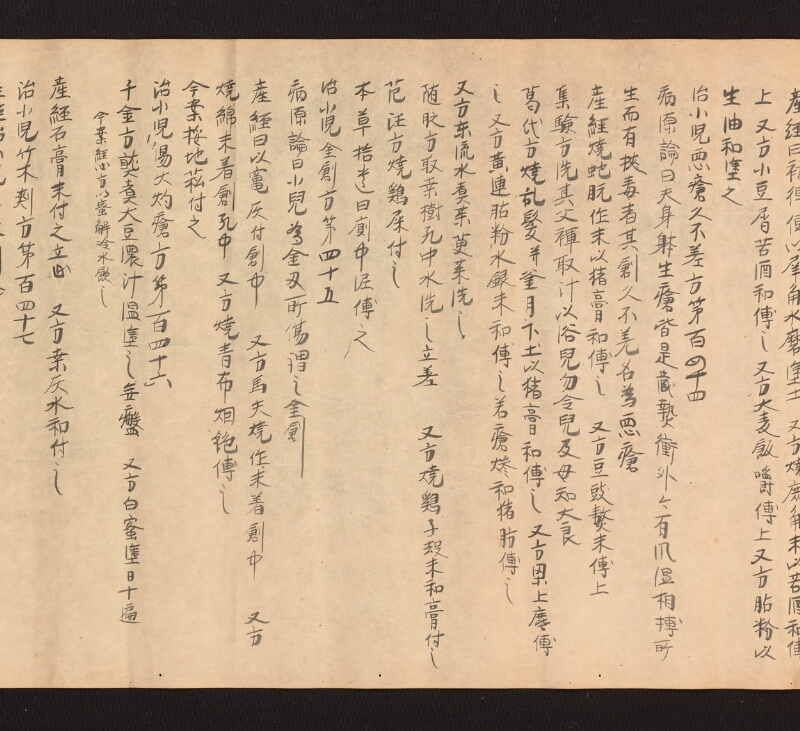 産經曰初得便以犀角水磨塗上 又方燒鹿角末以苦酒和傅
上 又方小豆屑苦酒和傅之 又方大麦飯嚼傅上又方胎粉以
生油和塗之
治小児悪瘡久不差方第百四十四
病源論曰夫身躰生瘡皆是蔵熱衝外々有風湿相搏所
生而有挾毒者其創久不差名為悪瘡
産經燒蛇脱作末以猪膏和傅之 又方豆豉熬末傅上
集驗方洗其父褌取汁以浴兒勿令兒及母知大良
葛氏方燒乱髮并釜月下土以猪膏和傅之 又方 上塵傅
之 又方黄連胎粉水銀末和傅之若瘡燥和猪肪傅之
又方東流水煮茱萸葉洗之
随時方取葉樹孔中水洗之立差 又方燒鷄子殻末和膏付之
范汪方燒鷄屎付之
本草拾遺曰廁中泥傅之
治小児金創方第四十五
病源論曰小兒為金刃所傷謂之金創
産經曰以竈灰付創中 又方馬矢燒作末着創中 又方
燒綿末着創孔中 又方燒青布烟 傅之
今案挼地菘付之
治小児湯火灼瘡方第百四十六
千金方 煮大豆濃汁温塗之無盤 又方白蜜塗日十遍
今案經心方以蜜解冷水飲之
産經石膏末付之立止 又方桑灰水和付之
治小児竹木刺方第百四十七